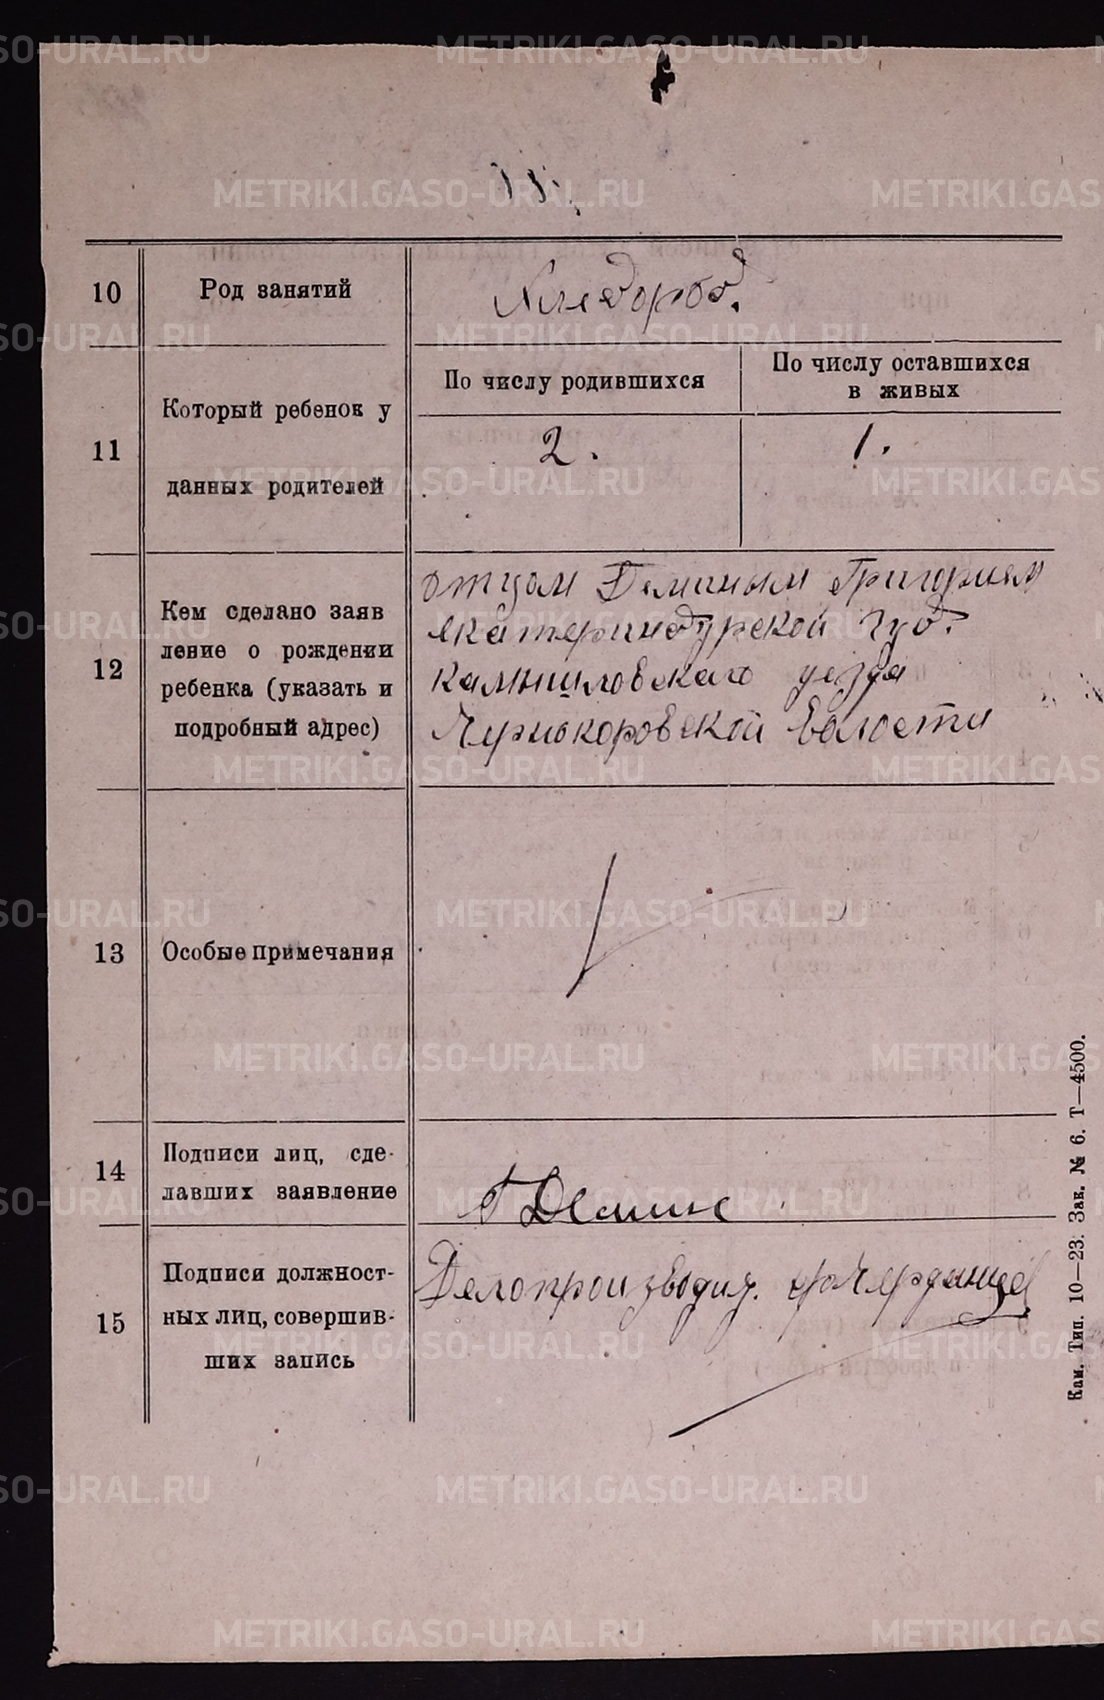 10 Род занятий Хлебороб.
11 Который ребенок у данных родителей
По числу родившихся
По числу оставшихся
в живых
2. 1.
12 Кем сделано заяв
ление о рождении
ребенка (указать и
подробный адрес)
отцом Деминым Григорием
Екатеринбургской губ.
Камышловского уезда
Черемховской волости
13 Особые примечания
14 Подписи лиц, сде-
лавших заявление
Г Демин
15 Подписи должност-
ных лиц, совершив-
ших запись
Делопроизвод.
Кам. Тип. 10—23. Зак. № 6. Т—4500.
METRIKI.GASO-URAL.RU